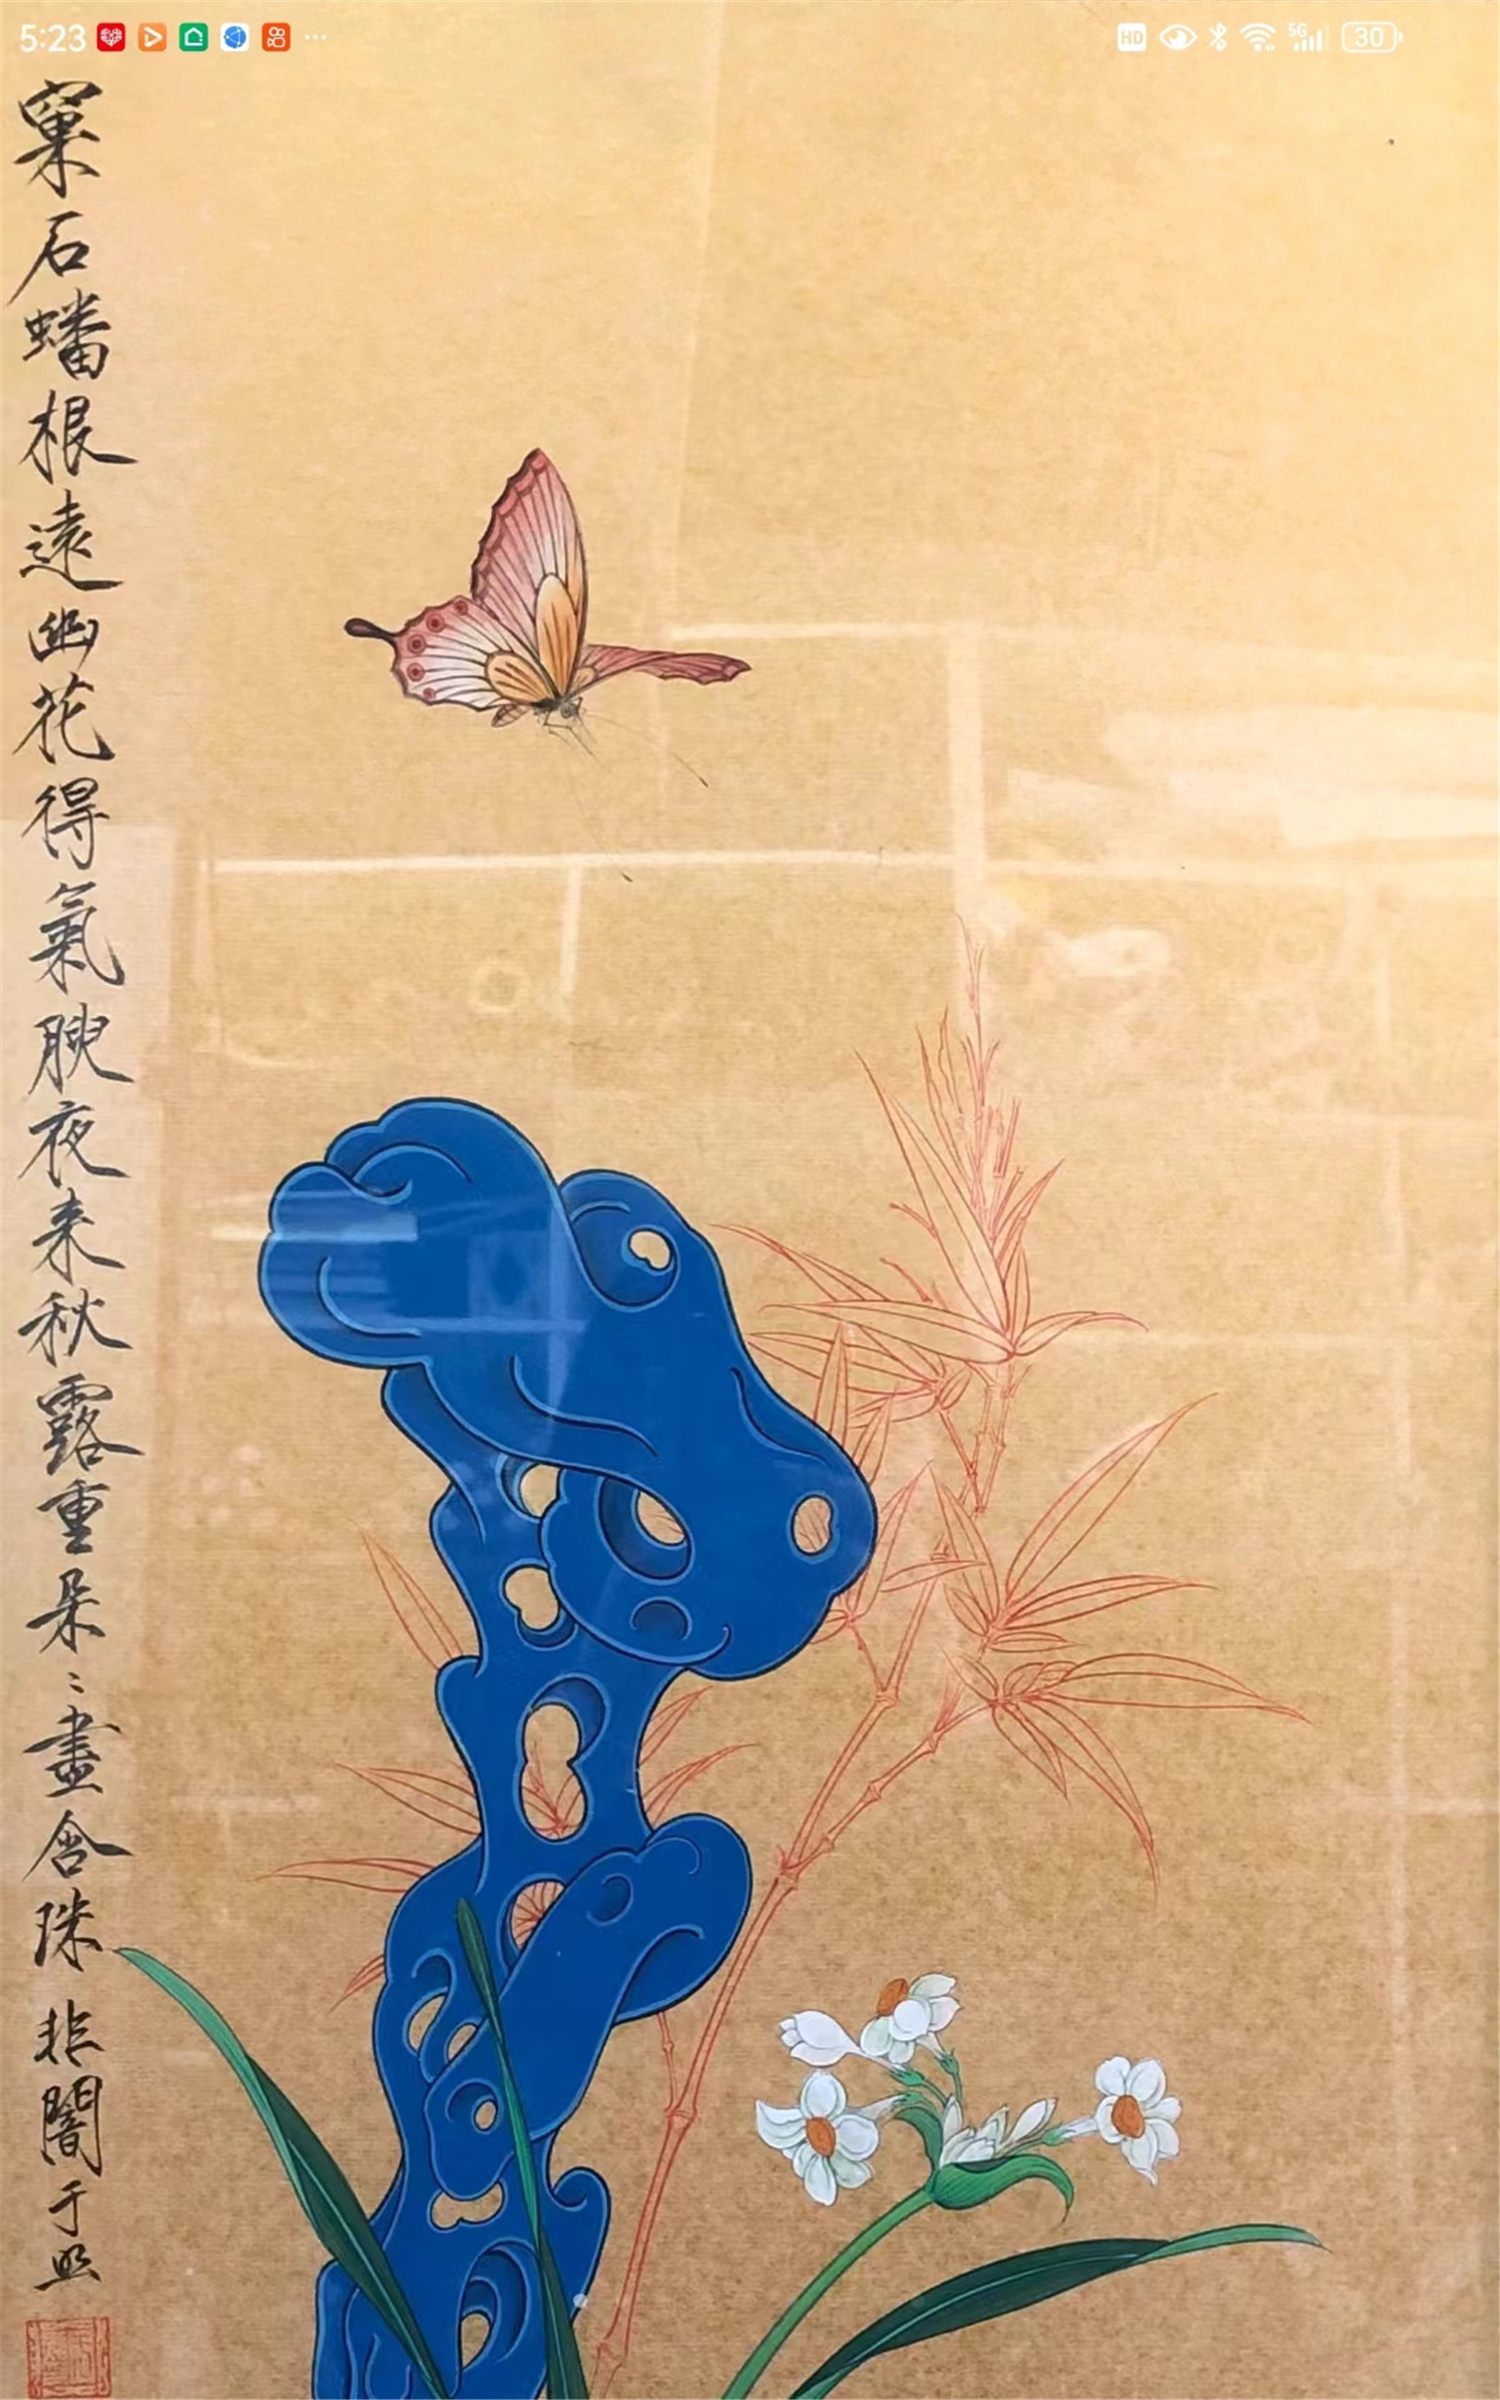 5:23 HD 5G 30
窠石蟠根遠幽花得氣腴夜来秋露重朵〻盡含珠 非闇于照